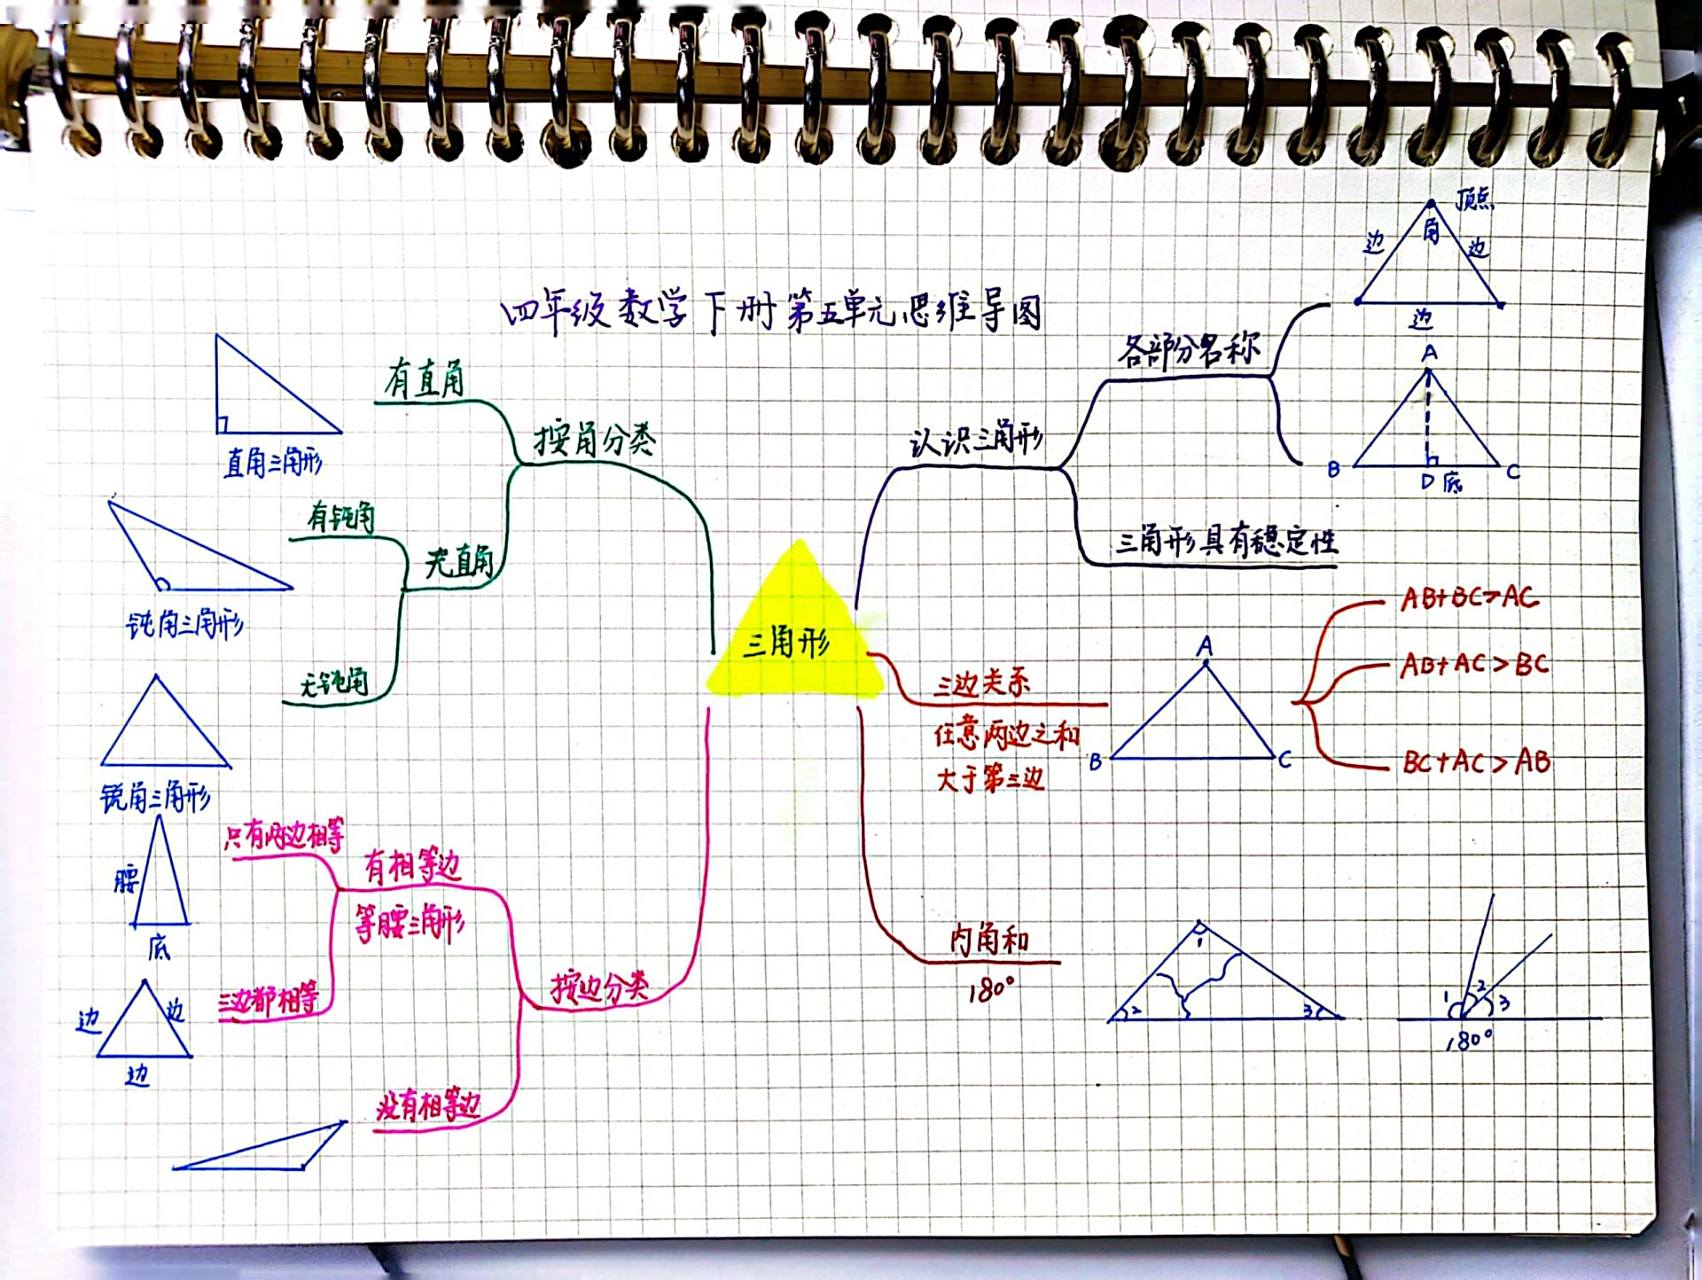 四年级数学下册第五单元思维导图
三角形
认识三角形
各部分名称
顶点
角
边
边
边
A
B
C
D
底
三角形具有稳定性
三边关系
任意两边之和
大于第三边
A
B
C
AB+BC>AC
AB+AC>BC
BC+AC>AB
内角和
180°
1
2
3
1
2
3
180°
按角分类
有直角
直角三角形
无直角
有钝角
钝角三角形
无钝角
锐角三角形
按边分类
有相等边
等腰三角形
只有两边相等
腰
底
三边都相等
边
边
边
没有相等边